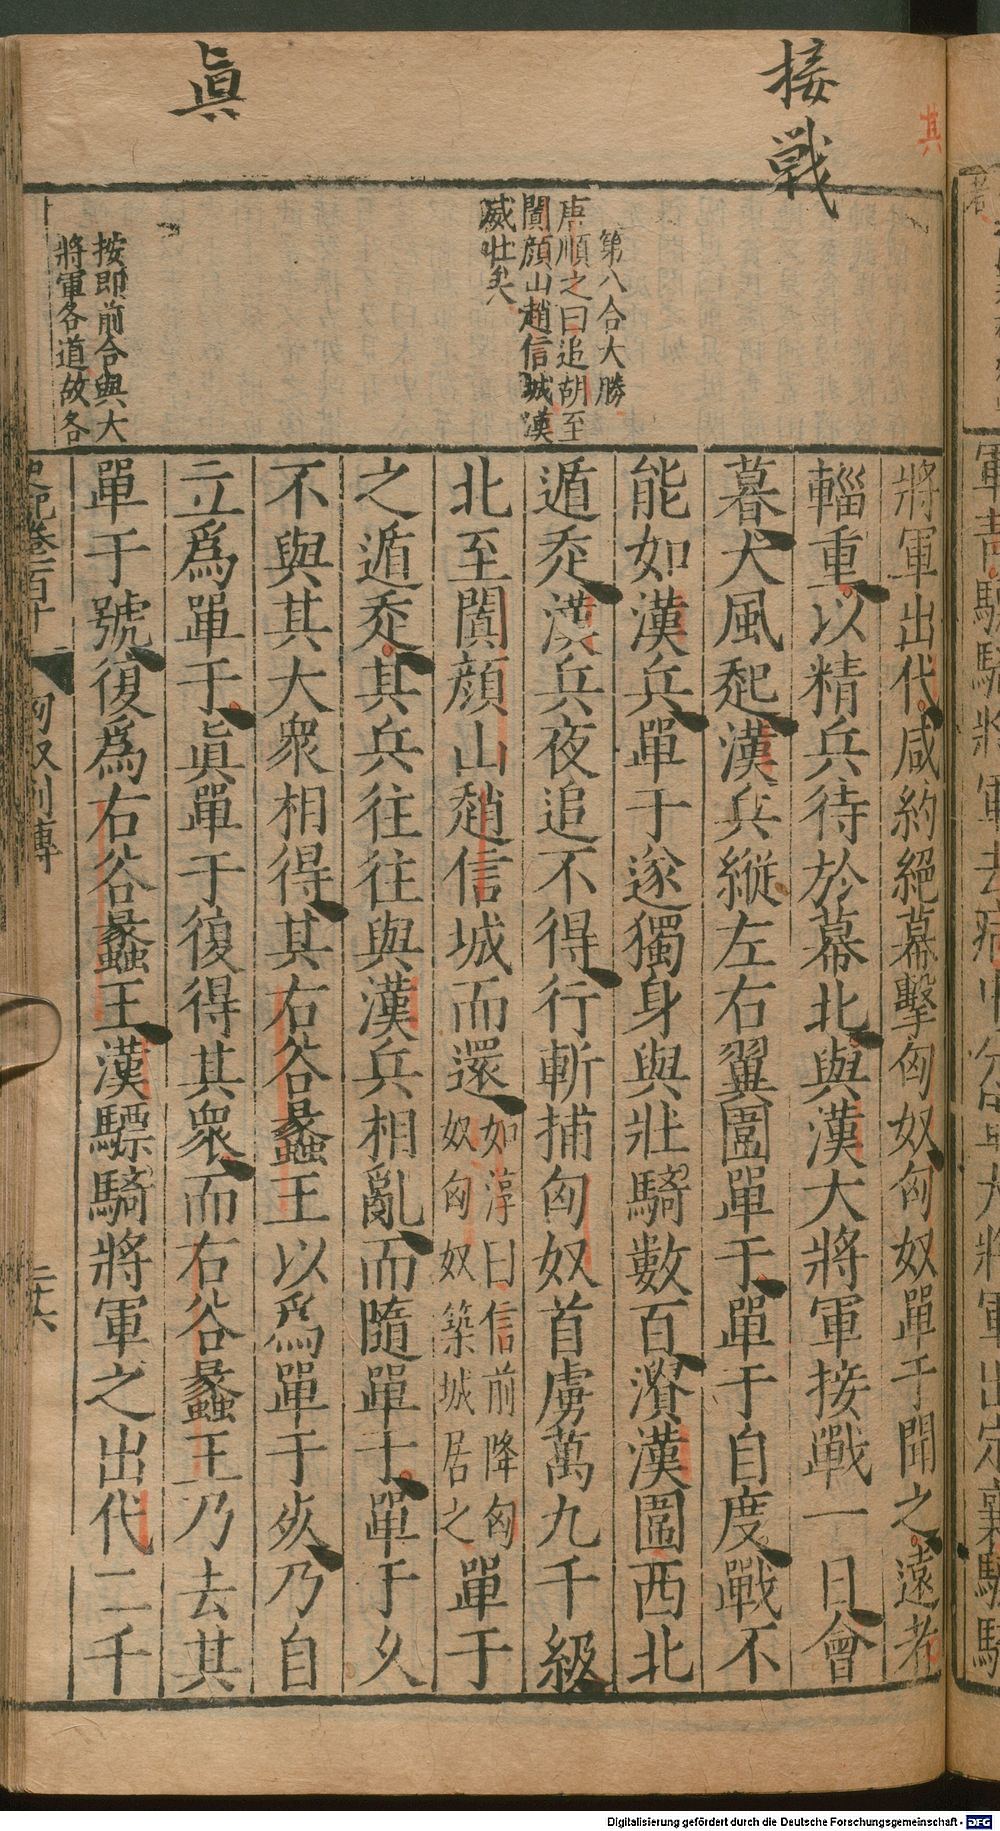 其
接戰
眞
第八合大勝
唐順之曰追胡至
闐顏山趙信城漢
威壯矣
按即前合與大
將軍各道故各
將軍出代咸約絕幕擊匈奴匈奴單于聞之遠者
輜重以精兵待於幕北與漢大將軍接戰一日會
暮大風起漢兵縱左右翼圍單于單于自度戰不
能如漢兵單于遂獨身與壯騎數百潰漢圍西北
遁走漢兵夜追不得行斬捕匈奴首虜萬九千級
北至闐顏山趙信城而還如淳曰信前降匈奴匈奴築城居之單于
之遁走其兵往往與漢兵相亂而隨單于單于久
不與其大衆相得其右谷蠡王以爲單于死乃自
立爲單于眞單于復得其衆而右谷蠡王乃去其
單于號復爲右谷蠡王漢驃騎將軍之出代二千
史記卷一百十 匈奴列傳 二十六
Digitalisierung gefördert durch die Deutsche Forschungsgemeinschaft - DFG